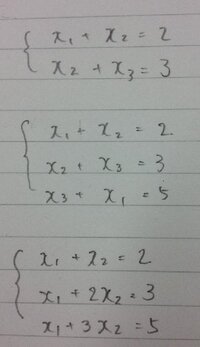 x₁ + x₂ = 2
x₂ + x₃ = 3
x₁ + x₂ = 2
x₂ + x₃ = 3
x₃ + x₁ = 5
x₁ + x₂ = 2
x₁ + 2x₂ = 3
x₁ + 3x₂ = 5